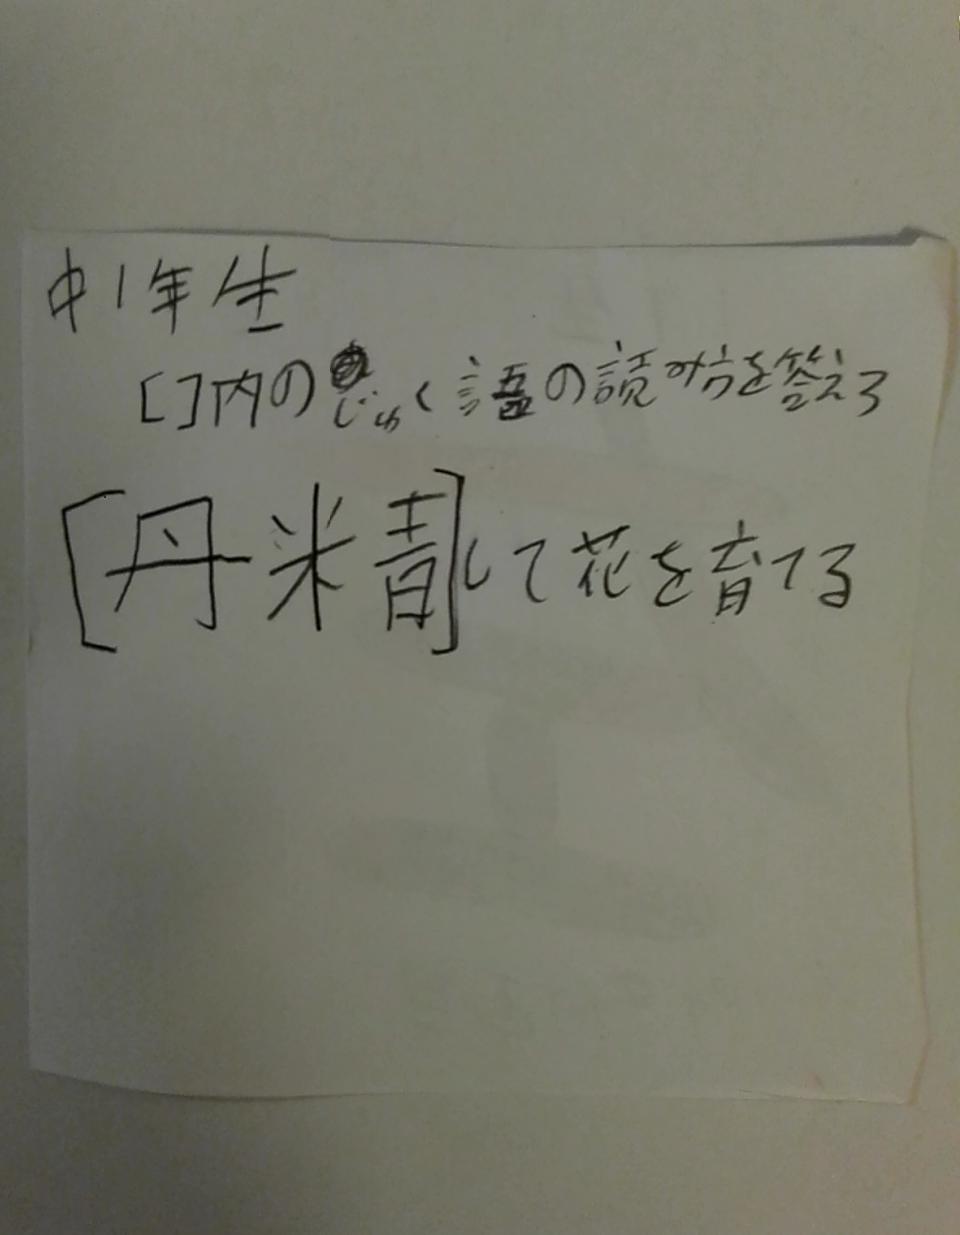 中1年生
[]内のじゅく語の読み方を答えろ
[丹精]して花を育てる